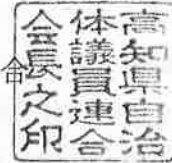 高知県自治
体議員連合
会長之印